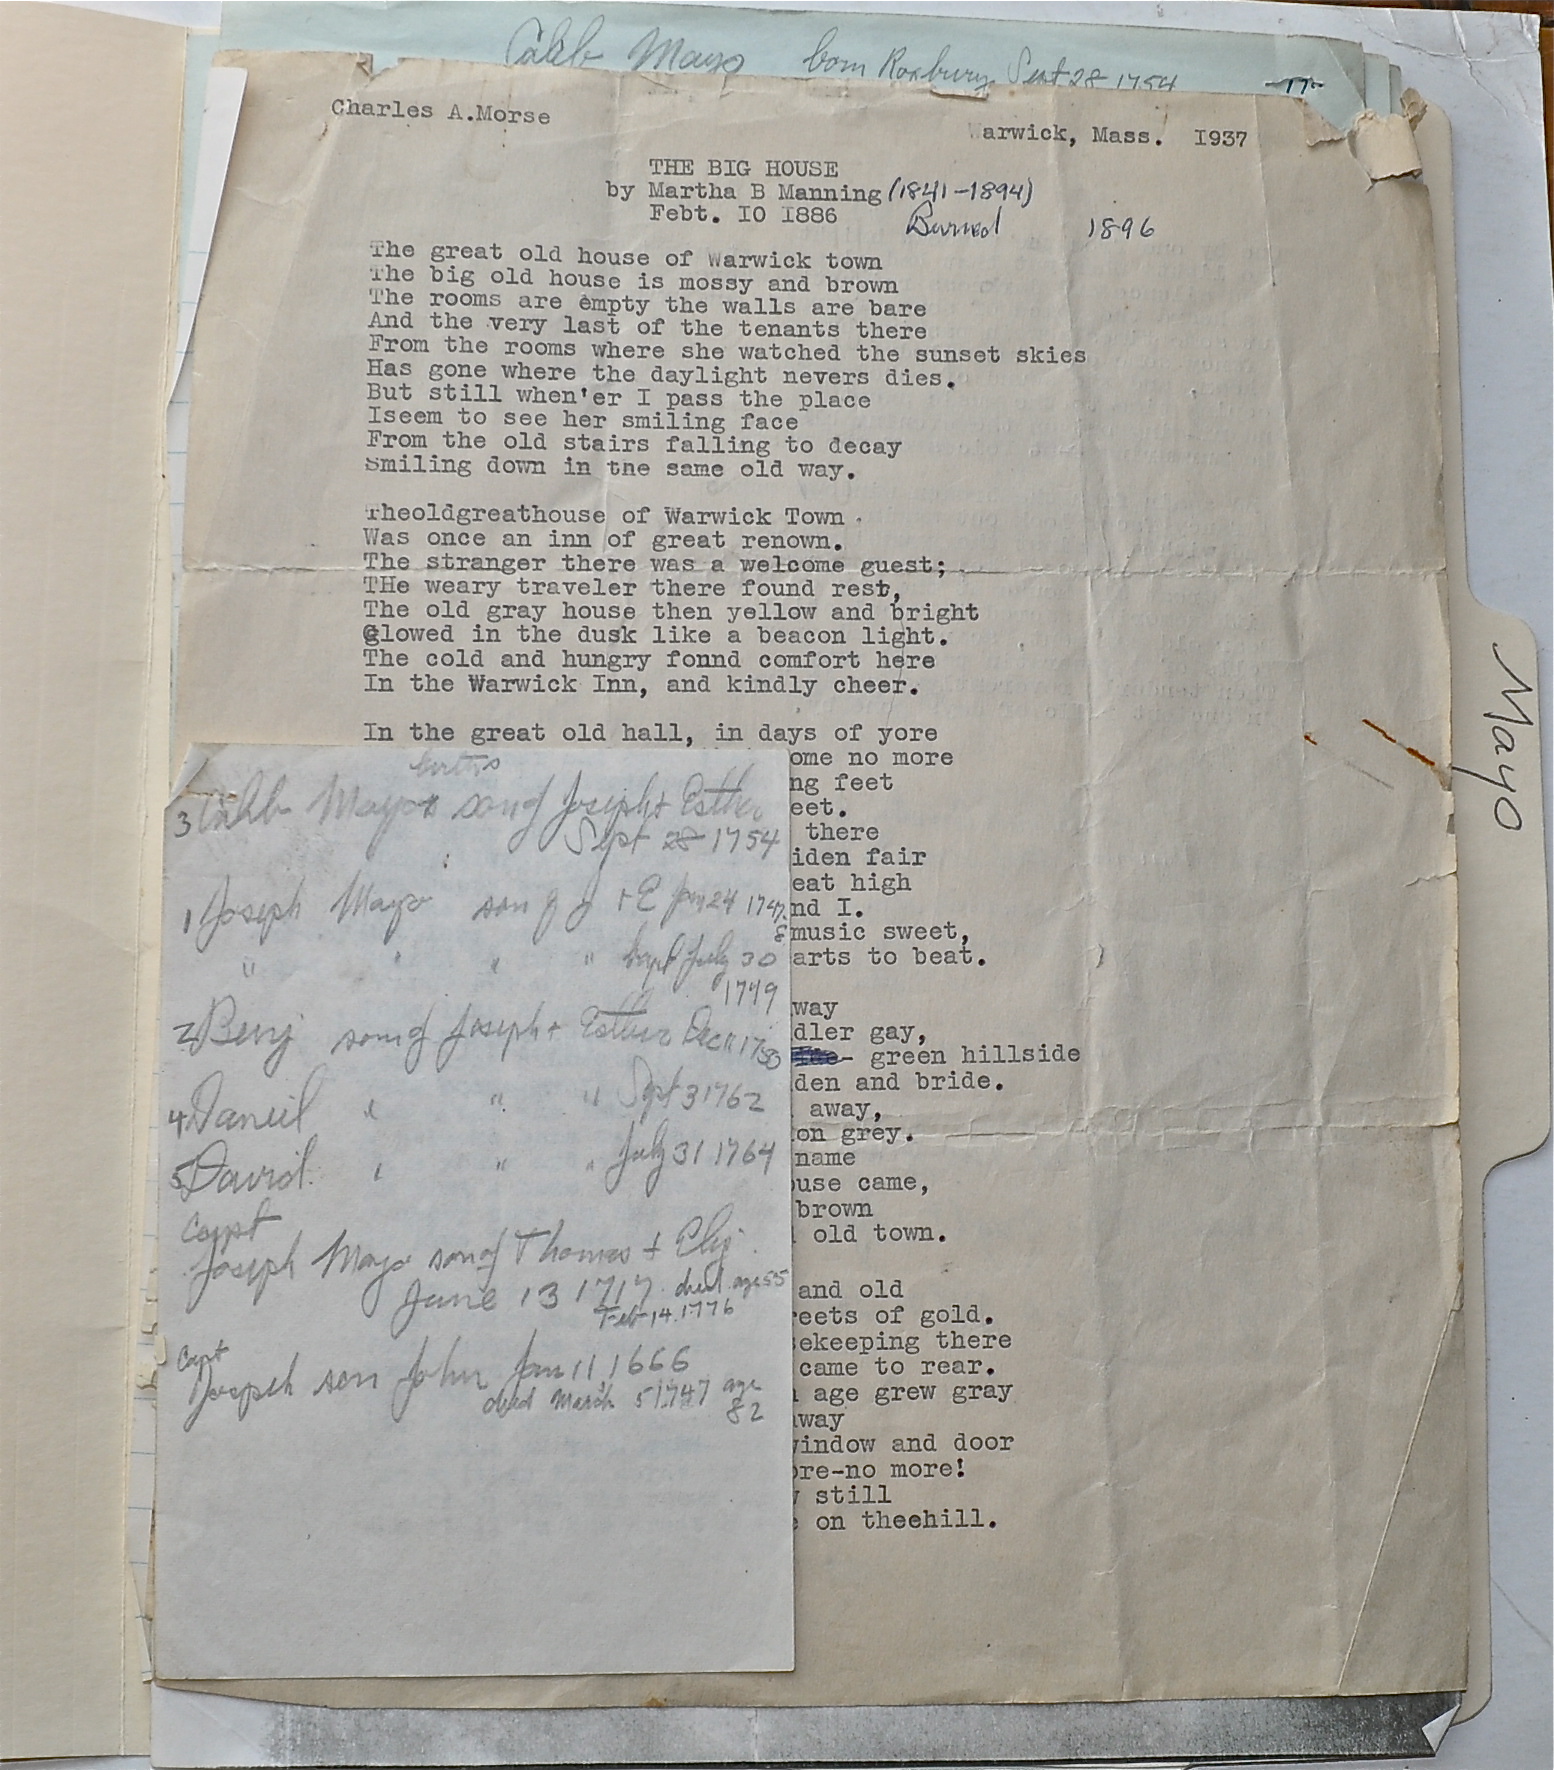 Caleb Mayo born Roxbury Sept 28 1754 -17-
Charles A.Morse
arwick, Mass. I937
THE BIG HOUSE
by Martha B Manning (1841-1894)
Febt. IO I886 Burned 1896
The great old house of Warwick town
The big old house is mossy and brown
The rooms are empty the walls are bare
And the very last of the tenants there
From the rooms where she watched the sunset skies
Has gone where the daylight nevers dies.
But still when'er I pass the place
Iseem to see her smiling face
From the old stairs falling to decay
Smiling down in the same old way.
Theoldgreathouse of Warwick Town
Was once an inn of great renown.
The stranger there was a welcome guest;
THe weary traveler there found rest,
The old gray house then yellow and bright
Glowed in the dusk like a beacon light.
The cold and hungry fonnd comfort here
In the Warwick Inn, and kindly cheer.
In the great old hall, in days of yore
ome no more
ng feet
eet.
there
iden fair
eat high
nd I.
music sweet,
arts to beat.
way
dler gay,
- green hillside
den and bride.
away,
on grey.
name
ouse came,
brown
old town.
and old
reets of gold.
sekeeping there
came to rear.
age grew gray
way
window and door
ore-no more!
still
on theehill.
births
3 Caleb Mayo son of Joseph + Esther
Sept 28 1754
1 Joseph Mayo son of J + E Jan 24 1747-
8
" " " " bapt July 30
1749
2 Benj son of Joseph + Esther Dec 11 1750
4 Daneil " " " Sept 3 1762
5 David " " " July 31 1764
Capt
Joseph Mayo son of Thomas + Eliz.
June 13 1717 died age 55
Feb 14.1776
Capt
Joseph son John Jan 11, 1666
died March 5 1747 age
82
Mayo